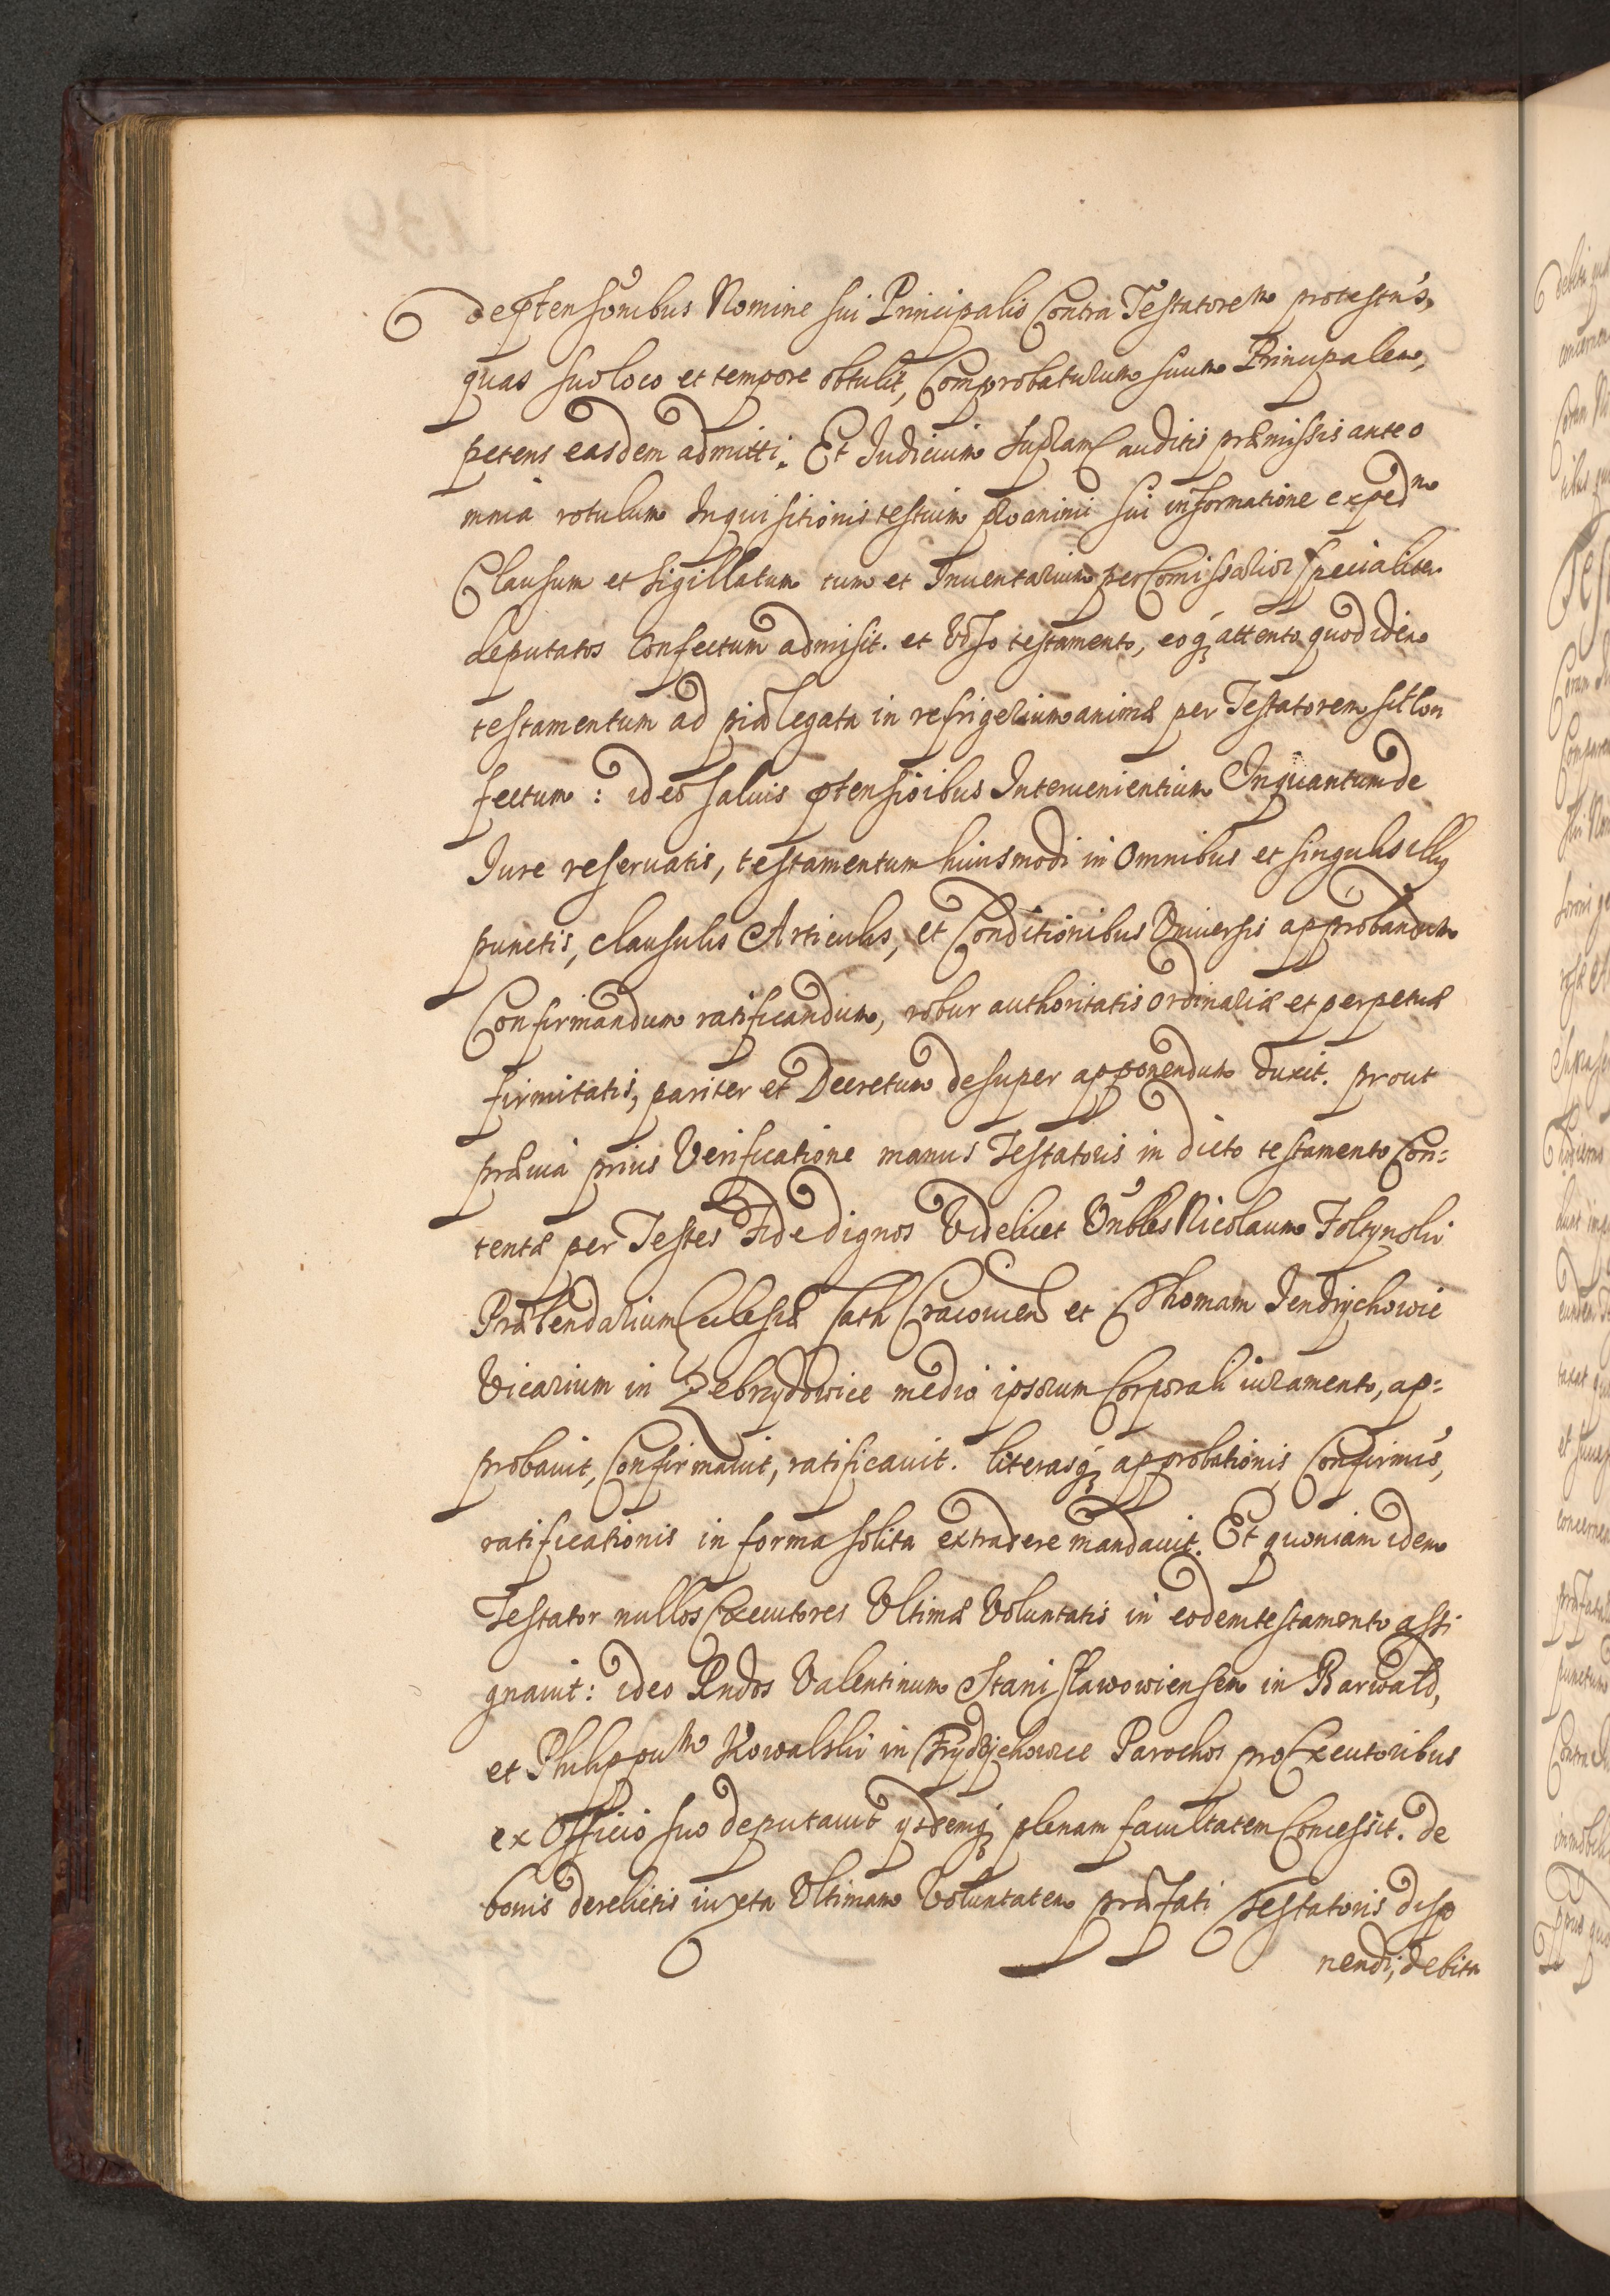 de ꝓtensõnibus Nomine sui Principalis Contra Testatorem protestus,
quas suo loco et tempore obtulit, Comprobaturum suum Principalem,
petens easdem admitti. Et Iudicium auditis præmissis ante o
mnia rotulum Inquisitionis testium pro animi sui informatione exped
Clausum et Sigillatum tum et Inventarium per Comissarios specialiter
deputatos Confectum admisit. et Viso testamento, eoq́ꝫ attento, quod idem
testamentum ad pia legata in refrigerium animæ per Testatorem sit Con
fectum: ideo salvis ꝓtensioibus Intervenientium Inquantum de
Iure reservatis, testamentum huiusmodi in Omnibus et singulis illꝰ
punctis, clausulis Articulis, et Conditionibus Universis approbandum
Confirmandum ratificandum, robur authoritatis ordinariæ et perpetuæ
firmitatis, pariter et Decretum desuper apponendum duxit. prout
prævia prius Verificatione manus Testatoris in dicto testamento Con=
tentæ per Testes Fide dignos Videlicet Vñbles Nicolaum Foltynski
Præbendarium Ecclesiæ Cath Cracovien et Thomam Jendrychowic
Vicarium in Zebrzydowice medio ipsorum Corporali iuramento, ap=
probavit, Confirmavit, ratificavit. literasq́ꝫ approbationis Confirmis,
ratificationis in forma solita extradere mandavit. Et quoniam idem
Testator nullos Executores Ultimæ Voluntatis in eodem testamento assi
gnavit: ideo Rndos Valentinum Stanisławowiensem in Barwałd,
et Philippum Kowalski in Frydrychowice Parochos pro Executoribus
ex Officio suo deputavit ysdemq́ꝫ plenam facultatem Concessit. de
bonis derelictis iuxta Ultimam Voluntatem præfati Testatoris dispo
nendi, debita